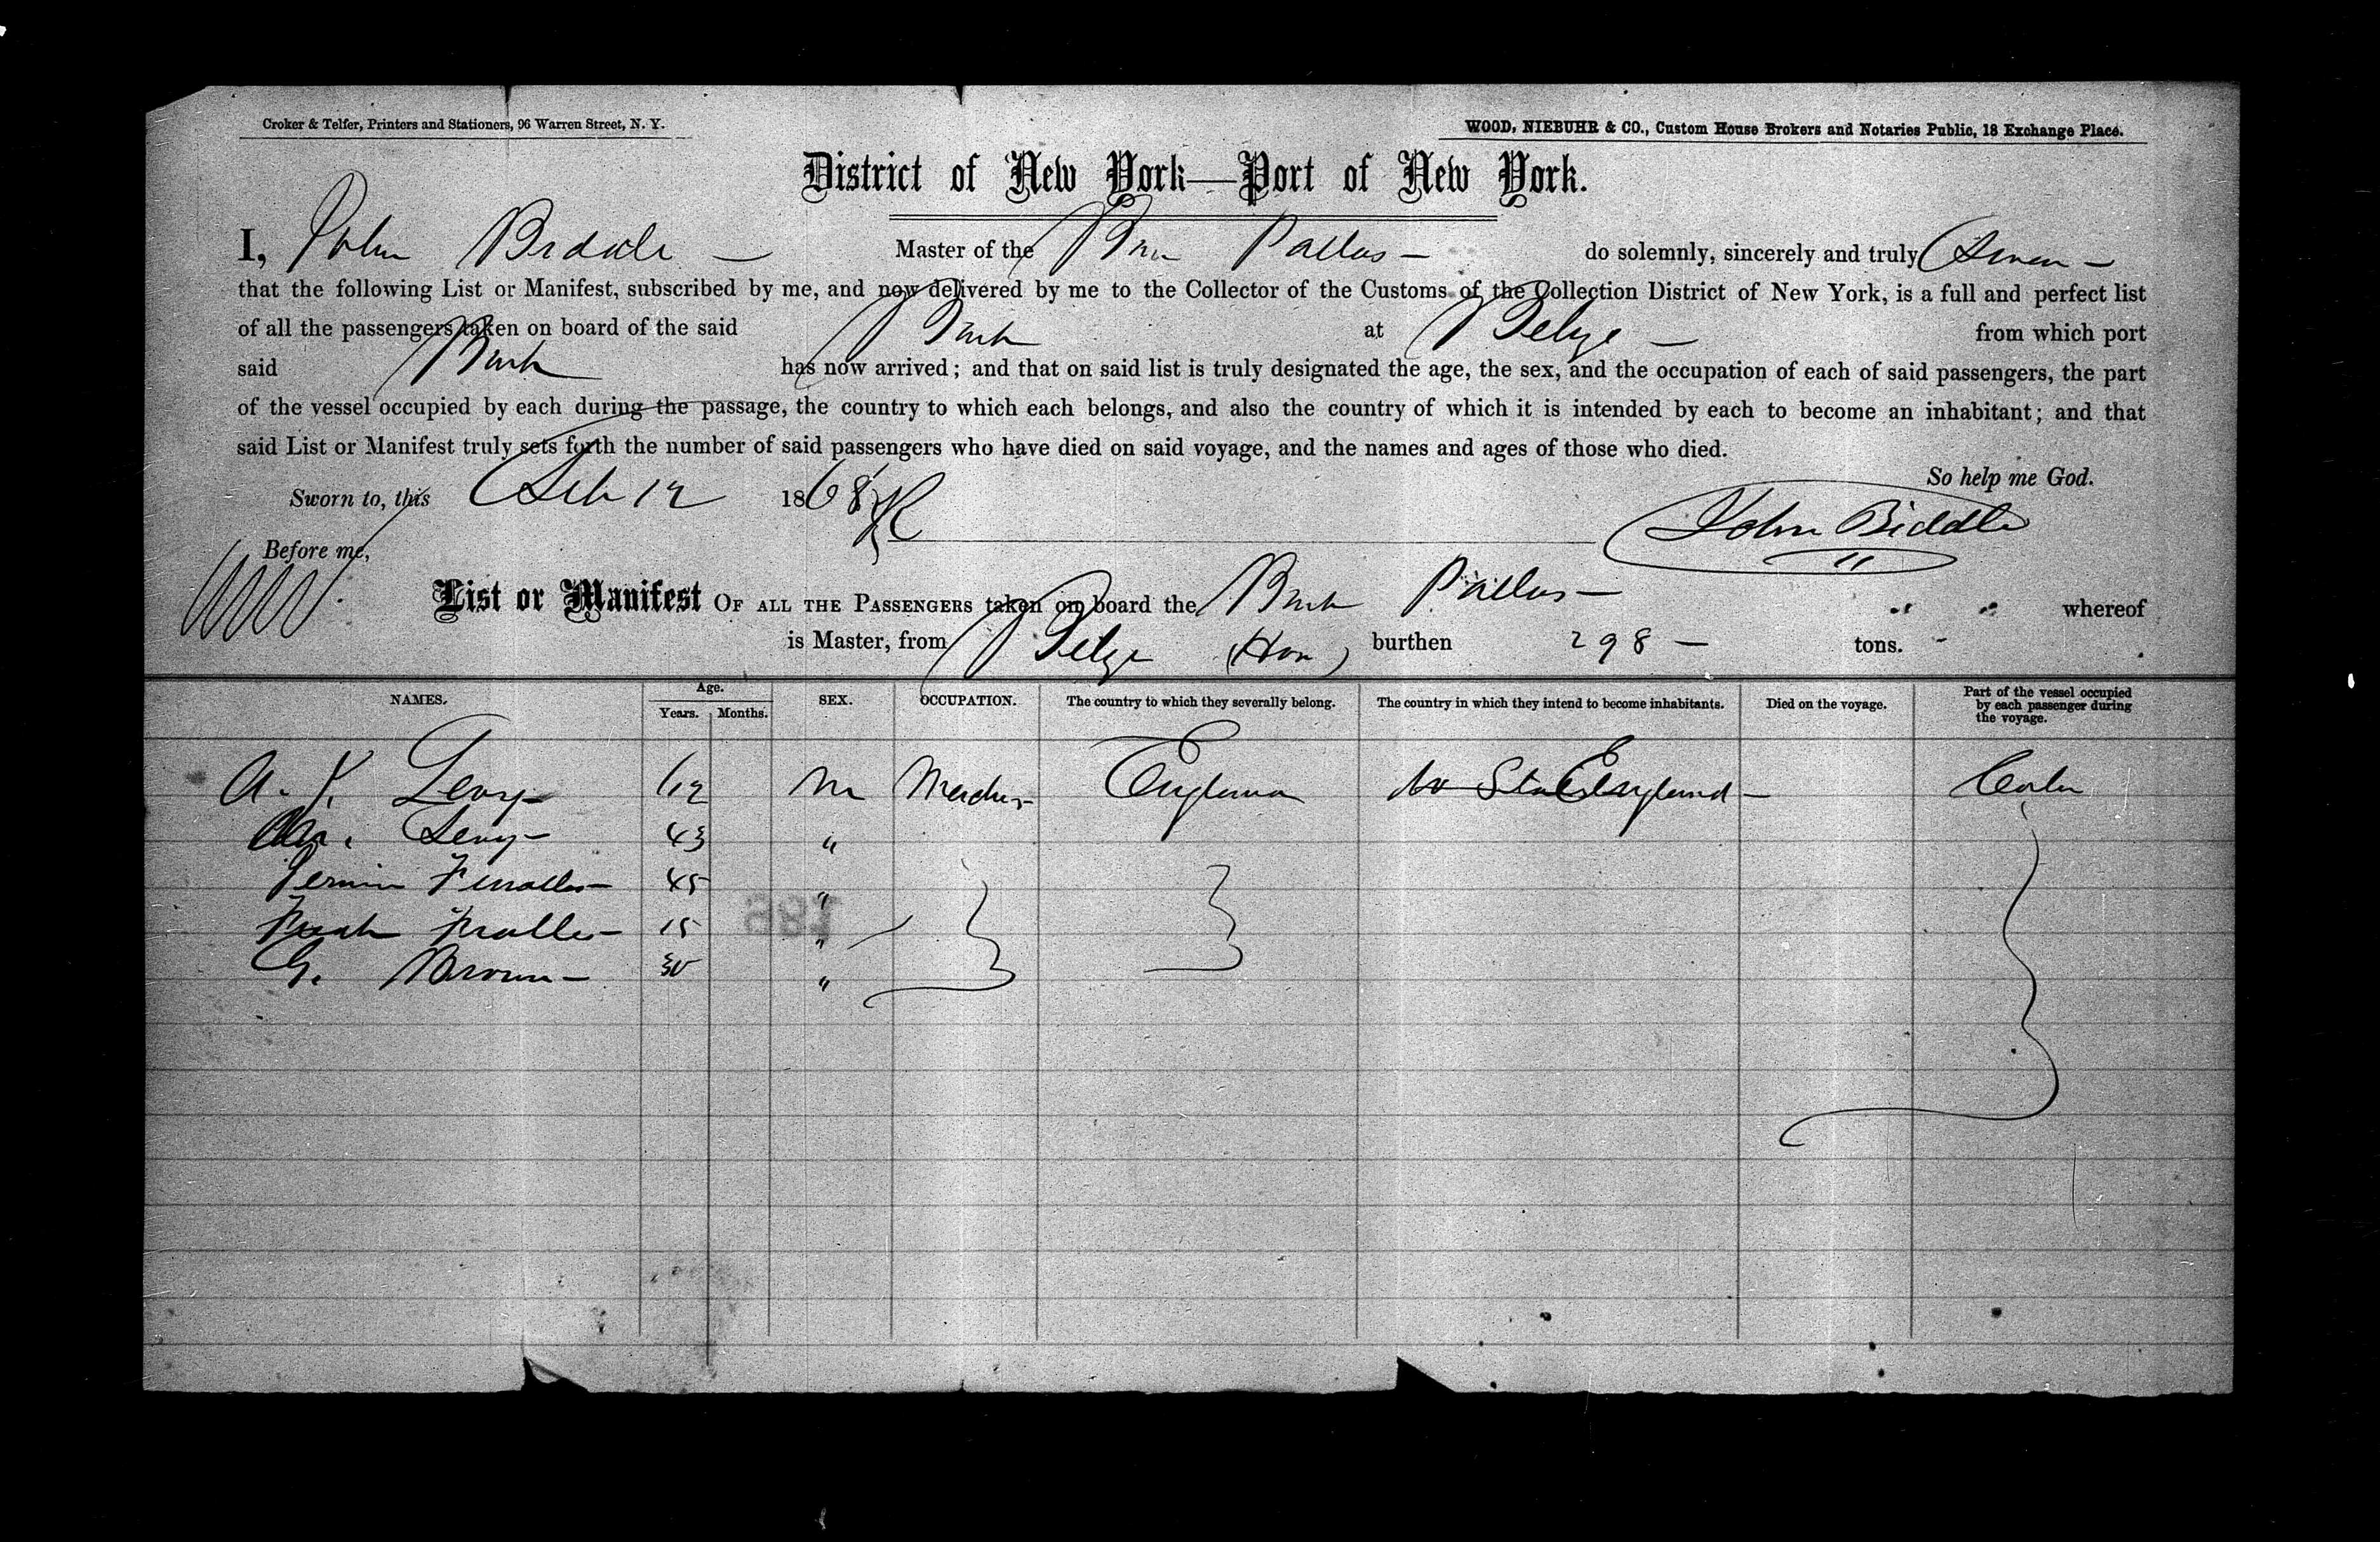 Croker & Telfer, Printers and Stationers, 96 Warren Street, N. Y.
WOOD, NIEBUHR & CO., Custom House Brokers and Notaries Public, 18 Exchange Place.
District of New York—Port of New York.
I, John Biddle — Master of the Bark Pallas — do solemnly, sincerely and truly Swear —
that the following List or Manifest, subscribed by me, and now delivered by me to the Collector of the Customs of the Collection District of New York, is a full and perfect list
of all the passengers taken on board of the said Bark at Belize — from which port
said Bark has now arrived; and that on said list is truly designated the age, the sex, and the occupation of each of said passengers, the part
of the vessel occupied by each during the passage, the country to which each belongs, and also the country of which it is intended by each to become an inhabitant; and that
said List or Manifest truly sets forth the number of said passengers who have died on said voyage, and the names and ages of those who died.
So help me God.
Sworn to, this 12 1868
John Biddle
Before me,
List or Manifest OF ALL THE PASSENGERS taken on board the Bark Pallas — " " whereof
is Master, from Belize (Hon) burthen 298 — tons.
NAMES. Age. Years. Months. SEX. OCCUPATION. The country to which they severally belong. The country in which they intend to become inhabitants. Died on the voyage. Part of the vessel occupied by each passenger during the voyage.
A. Levy 62 M England England — Cabin
Levy — 43 "
45 "
15 "
G. Brown — 30 "